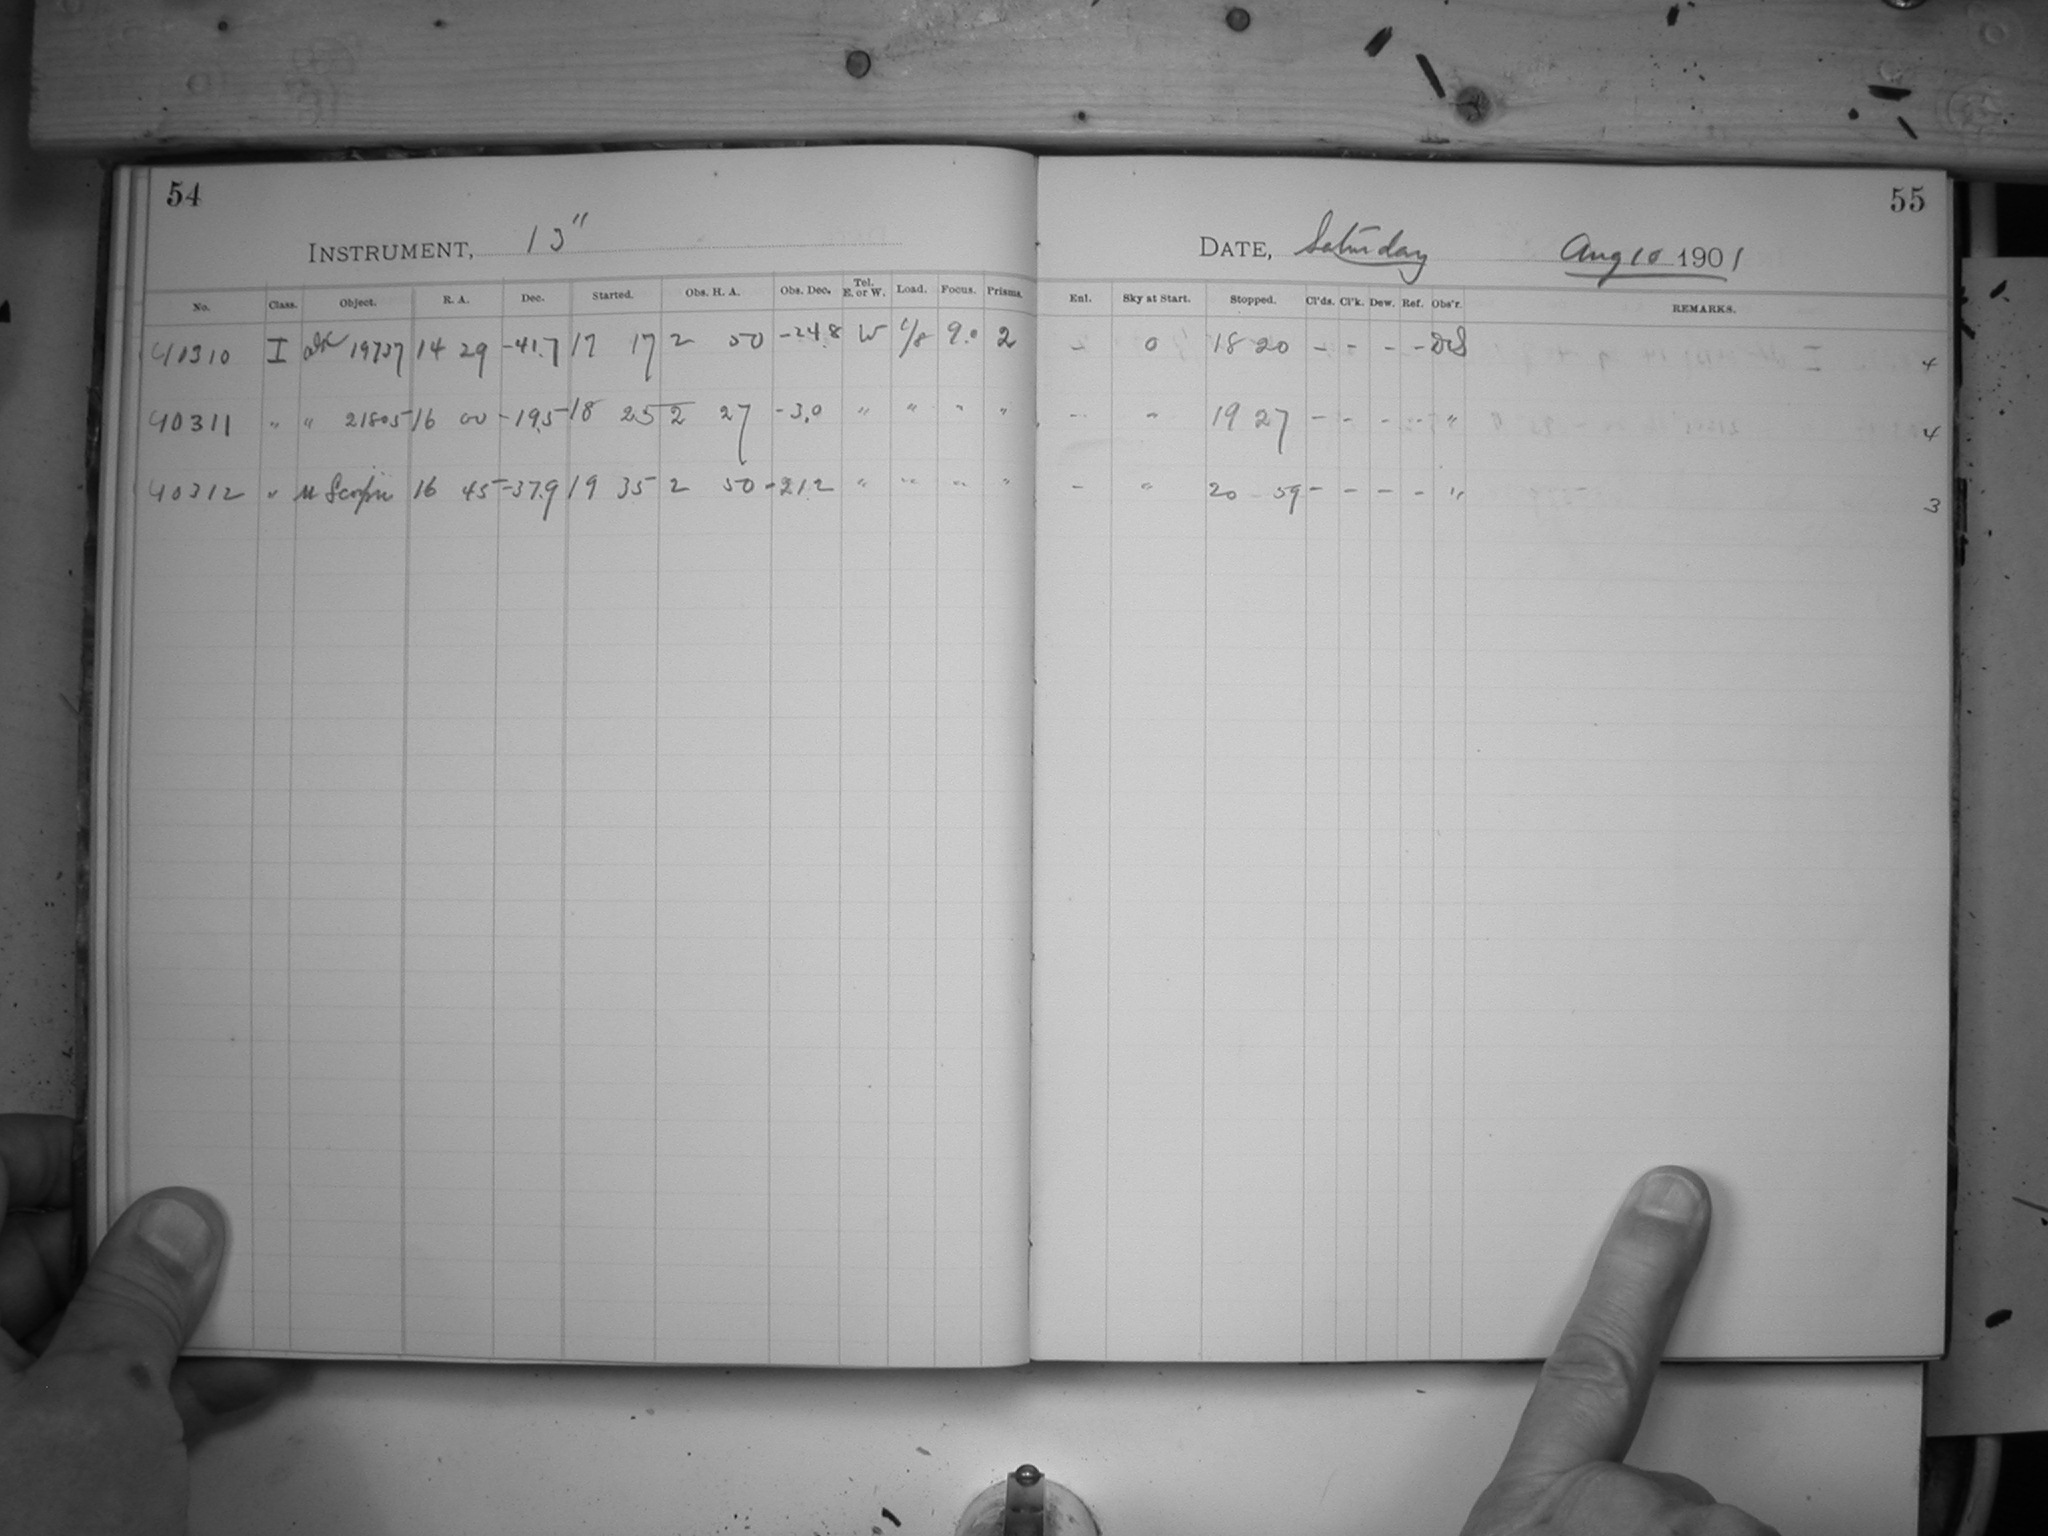 54
INSTRUMENT, 13"
No. Class. Object. R. A. Dec. Started. Obs. H. A. Obs. Dec. Tel. E. or W. Load. Focus. Prisms.
40310 I 19737 14 29 -41.7 17 17 2 50 -24.8 W c/8 9.0 2
40311 " " 21805 16 00 -19.5 18 25 2 27 -3.0 " " " "
40312 " μ Scorpii 16 45 -37.9 19 35 2 50 -21.2 " " " "
55
DATE, Saturday Aug 10 1901
Enl. Sky at Start. Stopped. Cl'ds. Cl'k. Dew. Ref. Obs'r. REMARKS.
- 0 18 20 - - - - 4
- " 19 27 - - - - " 4
- " 20 59 - - - - " 3